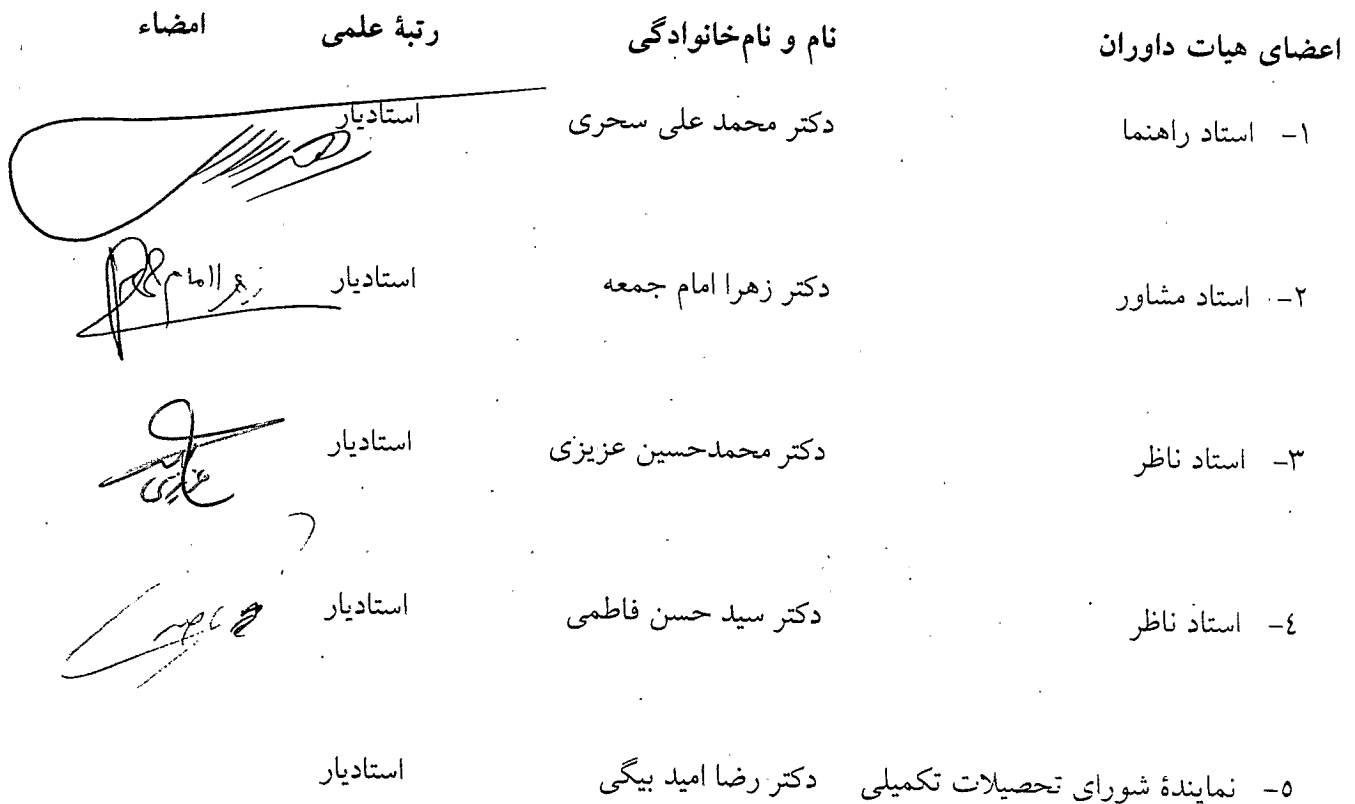 اعضای هیات داوران نام و نام‌خانوادگی رتبۀ علمی امضاء
۱- استاد راهنما دکتر محمد علی سحری استادیار
۲- استاد مشاور دکتر زهرا امام جمعه استادیار
زهرا امام
۳- استاد ناظر دکتر محمدحسین عزیزی استادیار
عزیزی
٤- استاد ناظر دکتر سید حسن فاطمی استادیار
٥- نمایندۀ شورای تحصیلات تکمیلی دکتر رضا امید بیگی استادیار